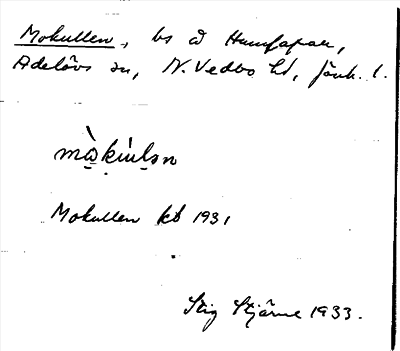 Mokullen, bs å Humsapar,
Adelövs sn, N. Vedbo hd, Jönk. l.
Mokullen kb 1931
Stig Stjärne 1933.